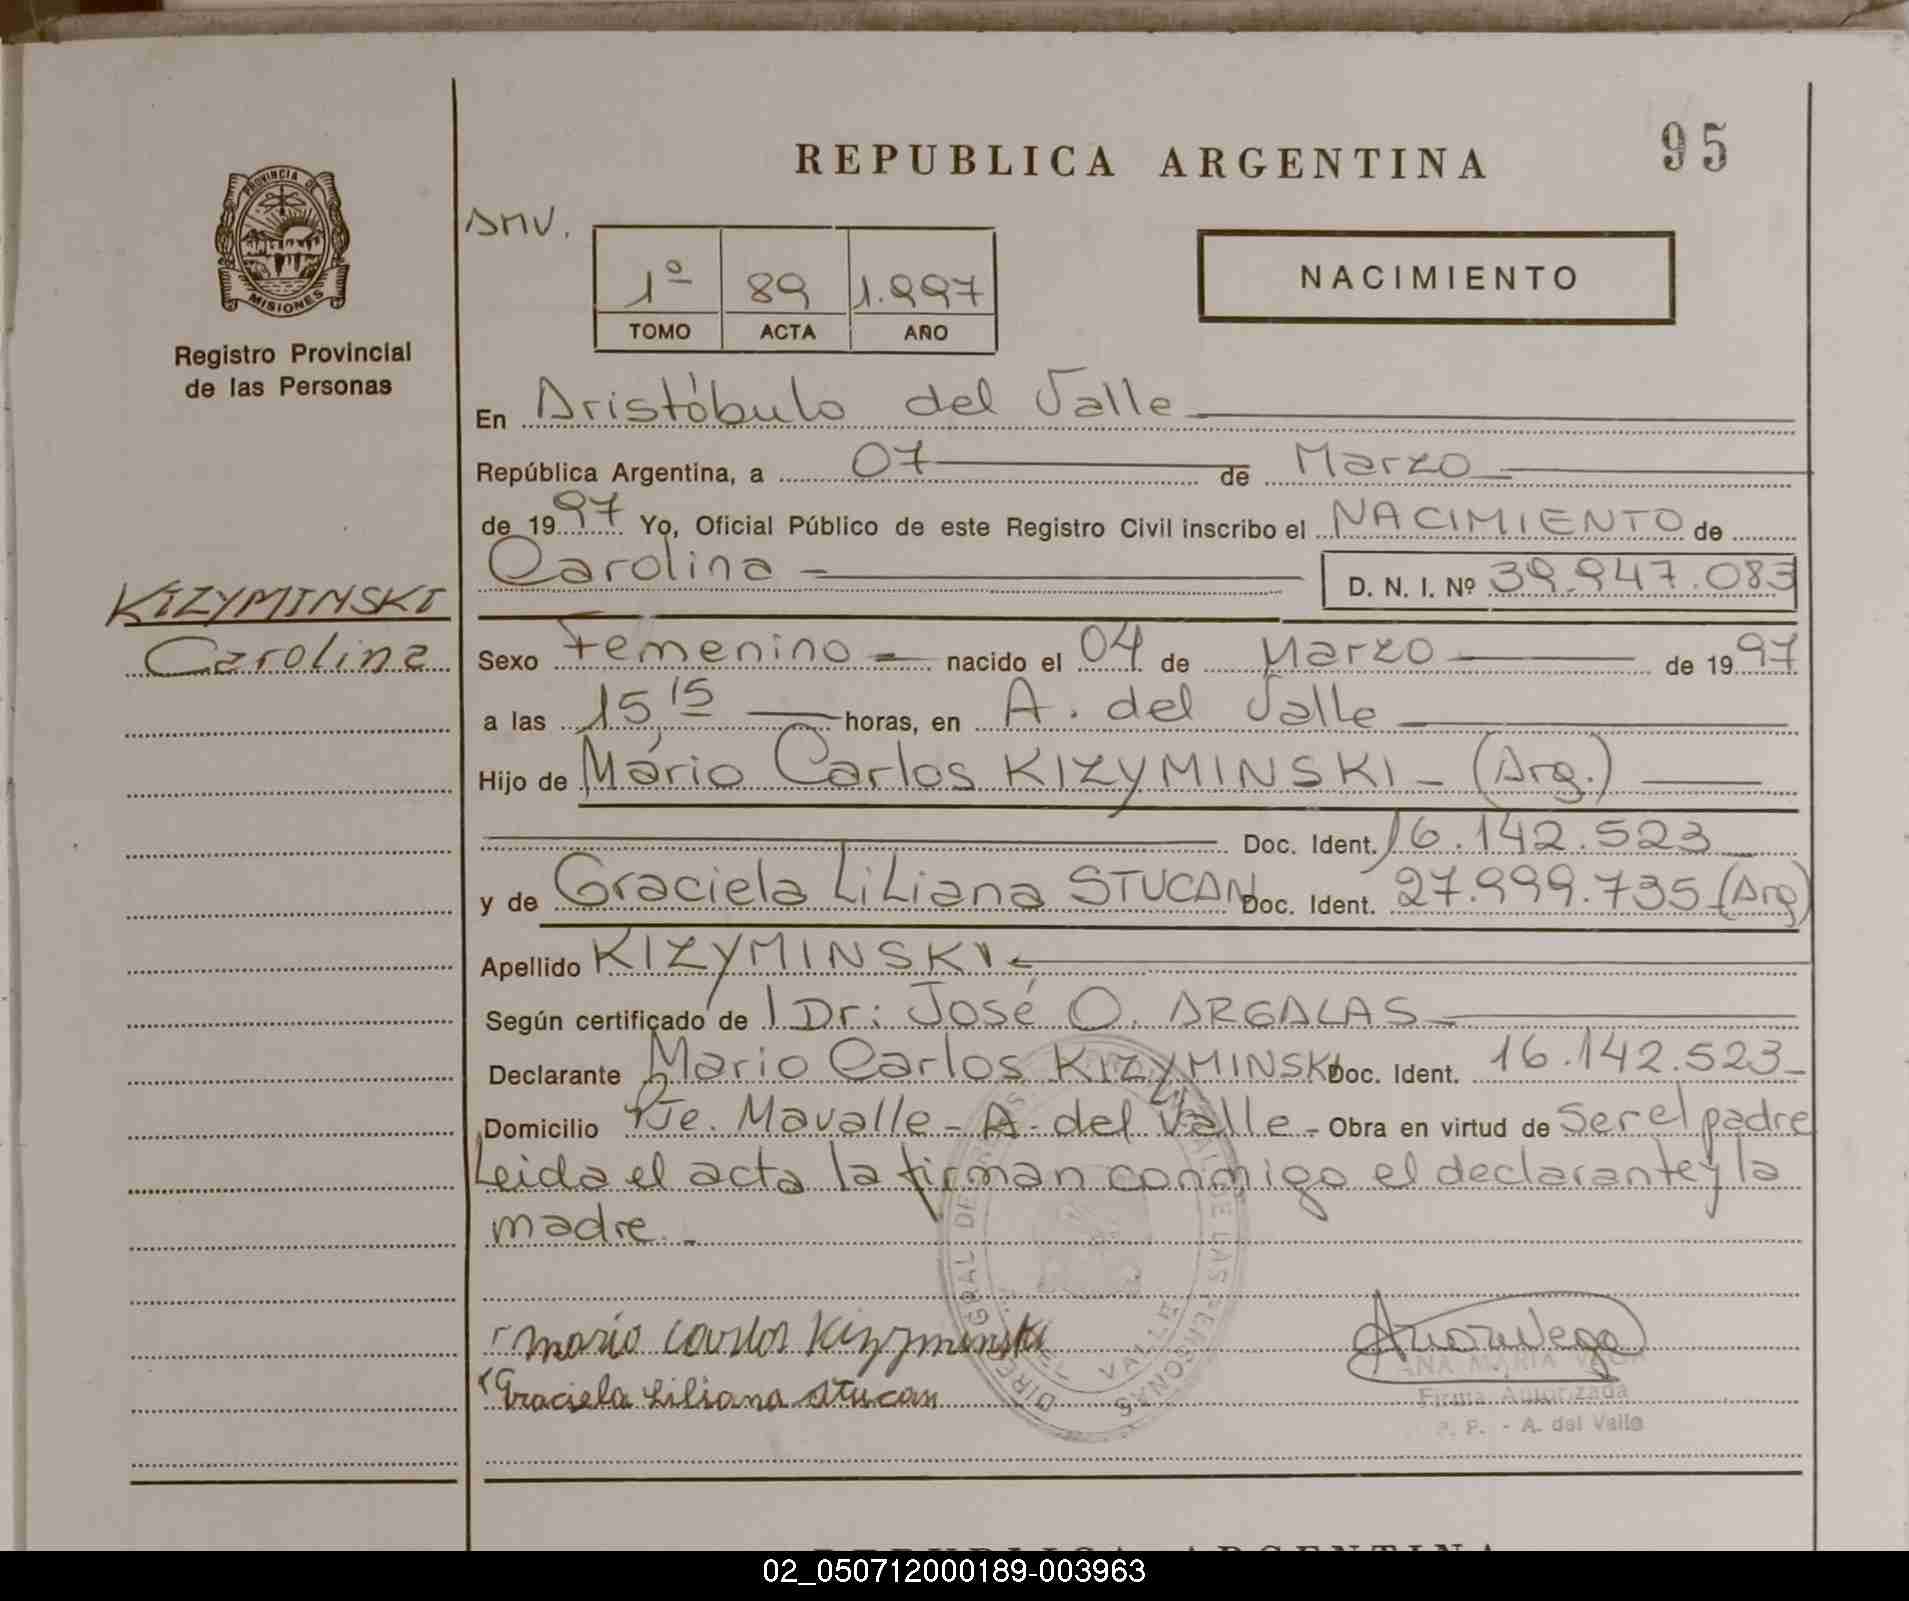 REPUBLICA ARGENTINA
95
PROVINCIA DE
MISIONES
Registro Provincial
de las Personas
AMV.
1º 89 1.997
TOMO ACTA AÑO
NACIMIENTO
En Aristóbulo del Valle
República Argentina, a 07 de Marzo
de 1997 Yo, Oficial Público de este Registro Civil inscribo el NACIMIENTO de
Carolina D. N. I. Nº 39.947.083
KIZYMINSKI
Carolina
Sexo Femenino nacido el 04 de Marzo de 1997
a las 15 15 horas, en A. del Valle
Hijo de Mario Carlos KIZYMINSKI - (Arg.)
Doc. Ident. 16.142.523
y de Graciela Liliana STUCAN Doc. Ident. 27.999.735 (Arg)
Apellido KIZYMINSKI
Según certificado de Dr: José O. ARGALAS
Declarante Mario Carlos KIZYMINSKI Doc. Ident. 16.142.523
Domicilio Pje. Mavalle - A. del Valle - Obra en virtud de Ser el padre
Leida el acta la firman conmigo el declarante y la
madre.-
Mario Carlos Kizyminski
Graciela Liliana Stucan
ANA MARIA VEGA
Firma Autorizada
A. del Valle
REPUBLICA ARGENTINA
02_050712000189-003963